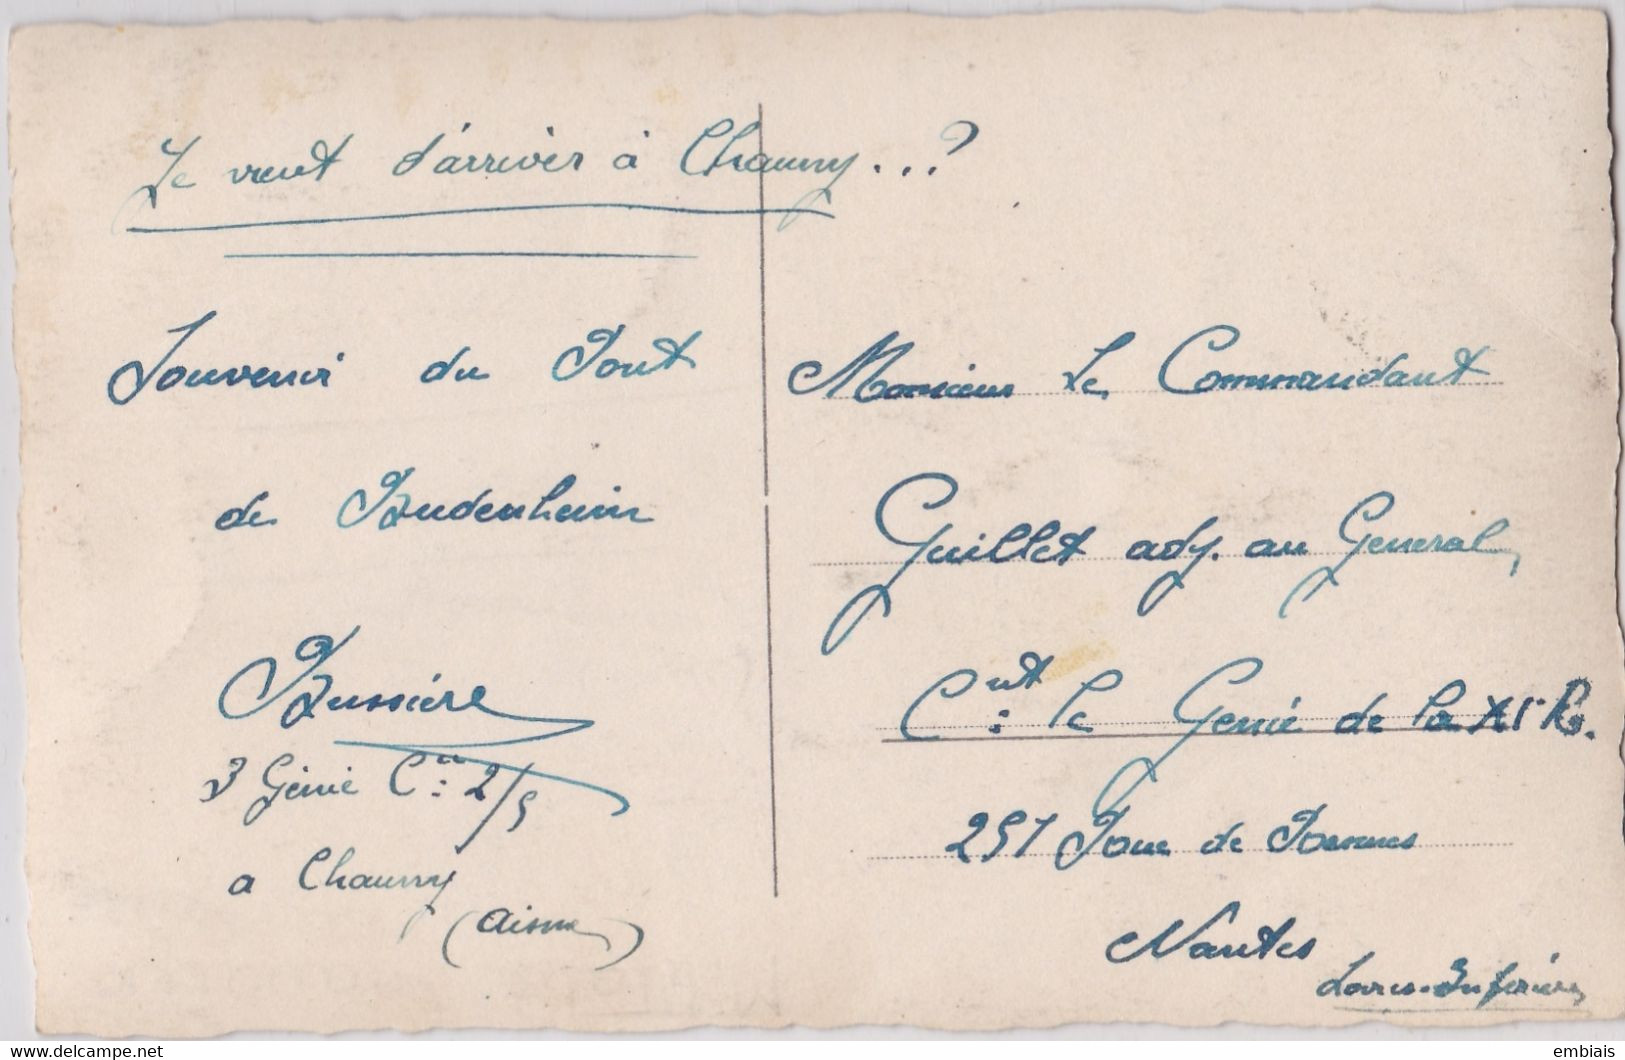 Je vient d'arriver à Chauny...?
Souvenir du Pont
de Budenheim
Bussière
3 Génie Cie 2/5
a Chauny
(Aisne)
Monsieur Le Commandant
Guillet adj. au General
Cnt le Genie de la XIe R.
251 Roue de Rennes
Nantes
Loire-Inférieure
embiais